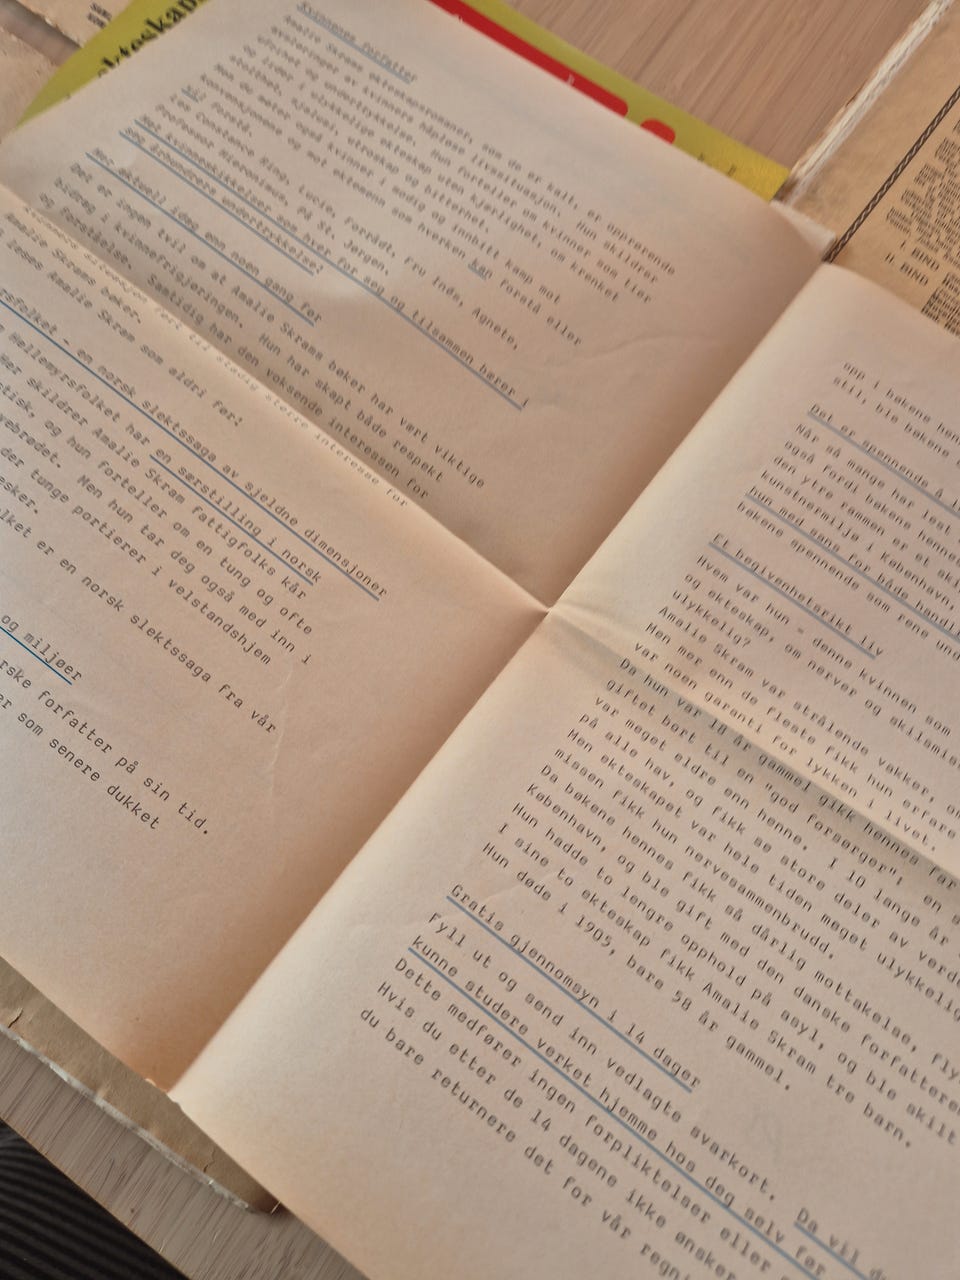 Kvinnenes forfatter
Amalie Skrams ekteskapsromaner, som de er kalt, er opprørende
avsløringer av kvinners håpløse livssituasjon. Hun skildrer
ufrihet og undertrykkelse. Hun forteller om kvinner som tier
og lider i ulykkelige ekteskap uten kjærlighet, om krenket
stolthet, sjalusi, utroskap og bitterhet.
Men du møter også kvinner i modig og innbitt kamp mot
konvensjonene og mot ektemenn som hverken kan forstå eller
vil forstå.
Les Constance Ring, Lucie, Forrådt, Fru Inès, Agnete,
Professor Hieronimus, På St. Jørgen.
Møt kvinneskikkelser som hver for seg og tilsammen bærer i
seg århundrers undertrykkelse!
Mer aktuell idag enn noen gang før
Det er ingen tvil om at Amalie Skrams bøker har vært viktige
bidrag i kvinnefrigjøringen. Hun har skapt både respekt
og forståelse. Samtidig har den voksende interessen for
kvinners situasjon ført til stadig større interesse for
Amalie Skrams bøker.
leses Amalie Skram som aldri før!
rsfolket - en norsk slektssaga av sjeldne dimensjoner
Hellemyrsfolket har en særstilling i norsk
Her skildrer Amalie Skram fattigfolks kår
tisk, og hun forteller om en tung og ofte
yebrødet. Men hun tar deg også med inn i
der tunge portierer i velstandshjem
esker.
lket er en norsk slektssaga fra vår
og miljøer
rske forfatter på sin tid.
er som senere dukket
opp i bøkene hen
stil, ble bøkene
Det er spennende å l
Når så mange har lest
også fordi bøkene hennes
den ytre rammen er et ski
kunstnermiljø i København,
hun med sans for både handl
bøkene spennende som rene und
Et begivenhetsrikt liv
Hvem var hun - denne kvinnen som
og ekteskap, om nerver og skilsmis
ulykkelig?
Amalie Skram var strålende vakker, o
Men mer enn de fleste fikk hun erfare
var noen garanti for lykken i livet.
Da hun var 18 år gammel gikk hennes far
giftet bort til en "god forsørger": en s
var meget eldre enn henne. I 10 lange år
på alle hav, og fikk se store deler av verd
Men ekteskapet var hele tiden meget ulykkelig
missen fikk hun nervesammenbrudd.
Da bøkene hennes fikk så dårlig mottakelse, fly
København, og ble gift med den danske forfattere
Hun hadde to lengre opphold på asyl, og ble skilt
I sine to ekteskap fikk Amalie Skram tre barn.
Hun døde i 1905, bare 58 år gammel.
Gratis gjennomsyn i 14 dager
Fyll ut og send inn vedlagte svarkort. Da vil d
kunne studere verket hjemme hos deg selv før
Dette medfører ingen forpliktelser eller
Hvis du etter de 14 dagene ikke ønsker
du bare returnere det for vår regni
I. BIND
II. BIND